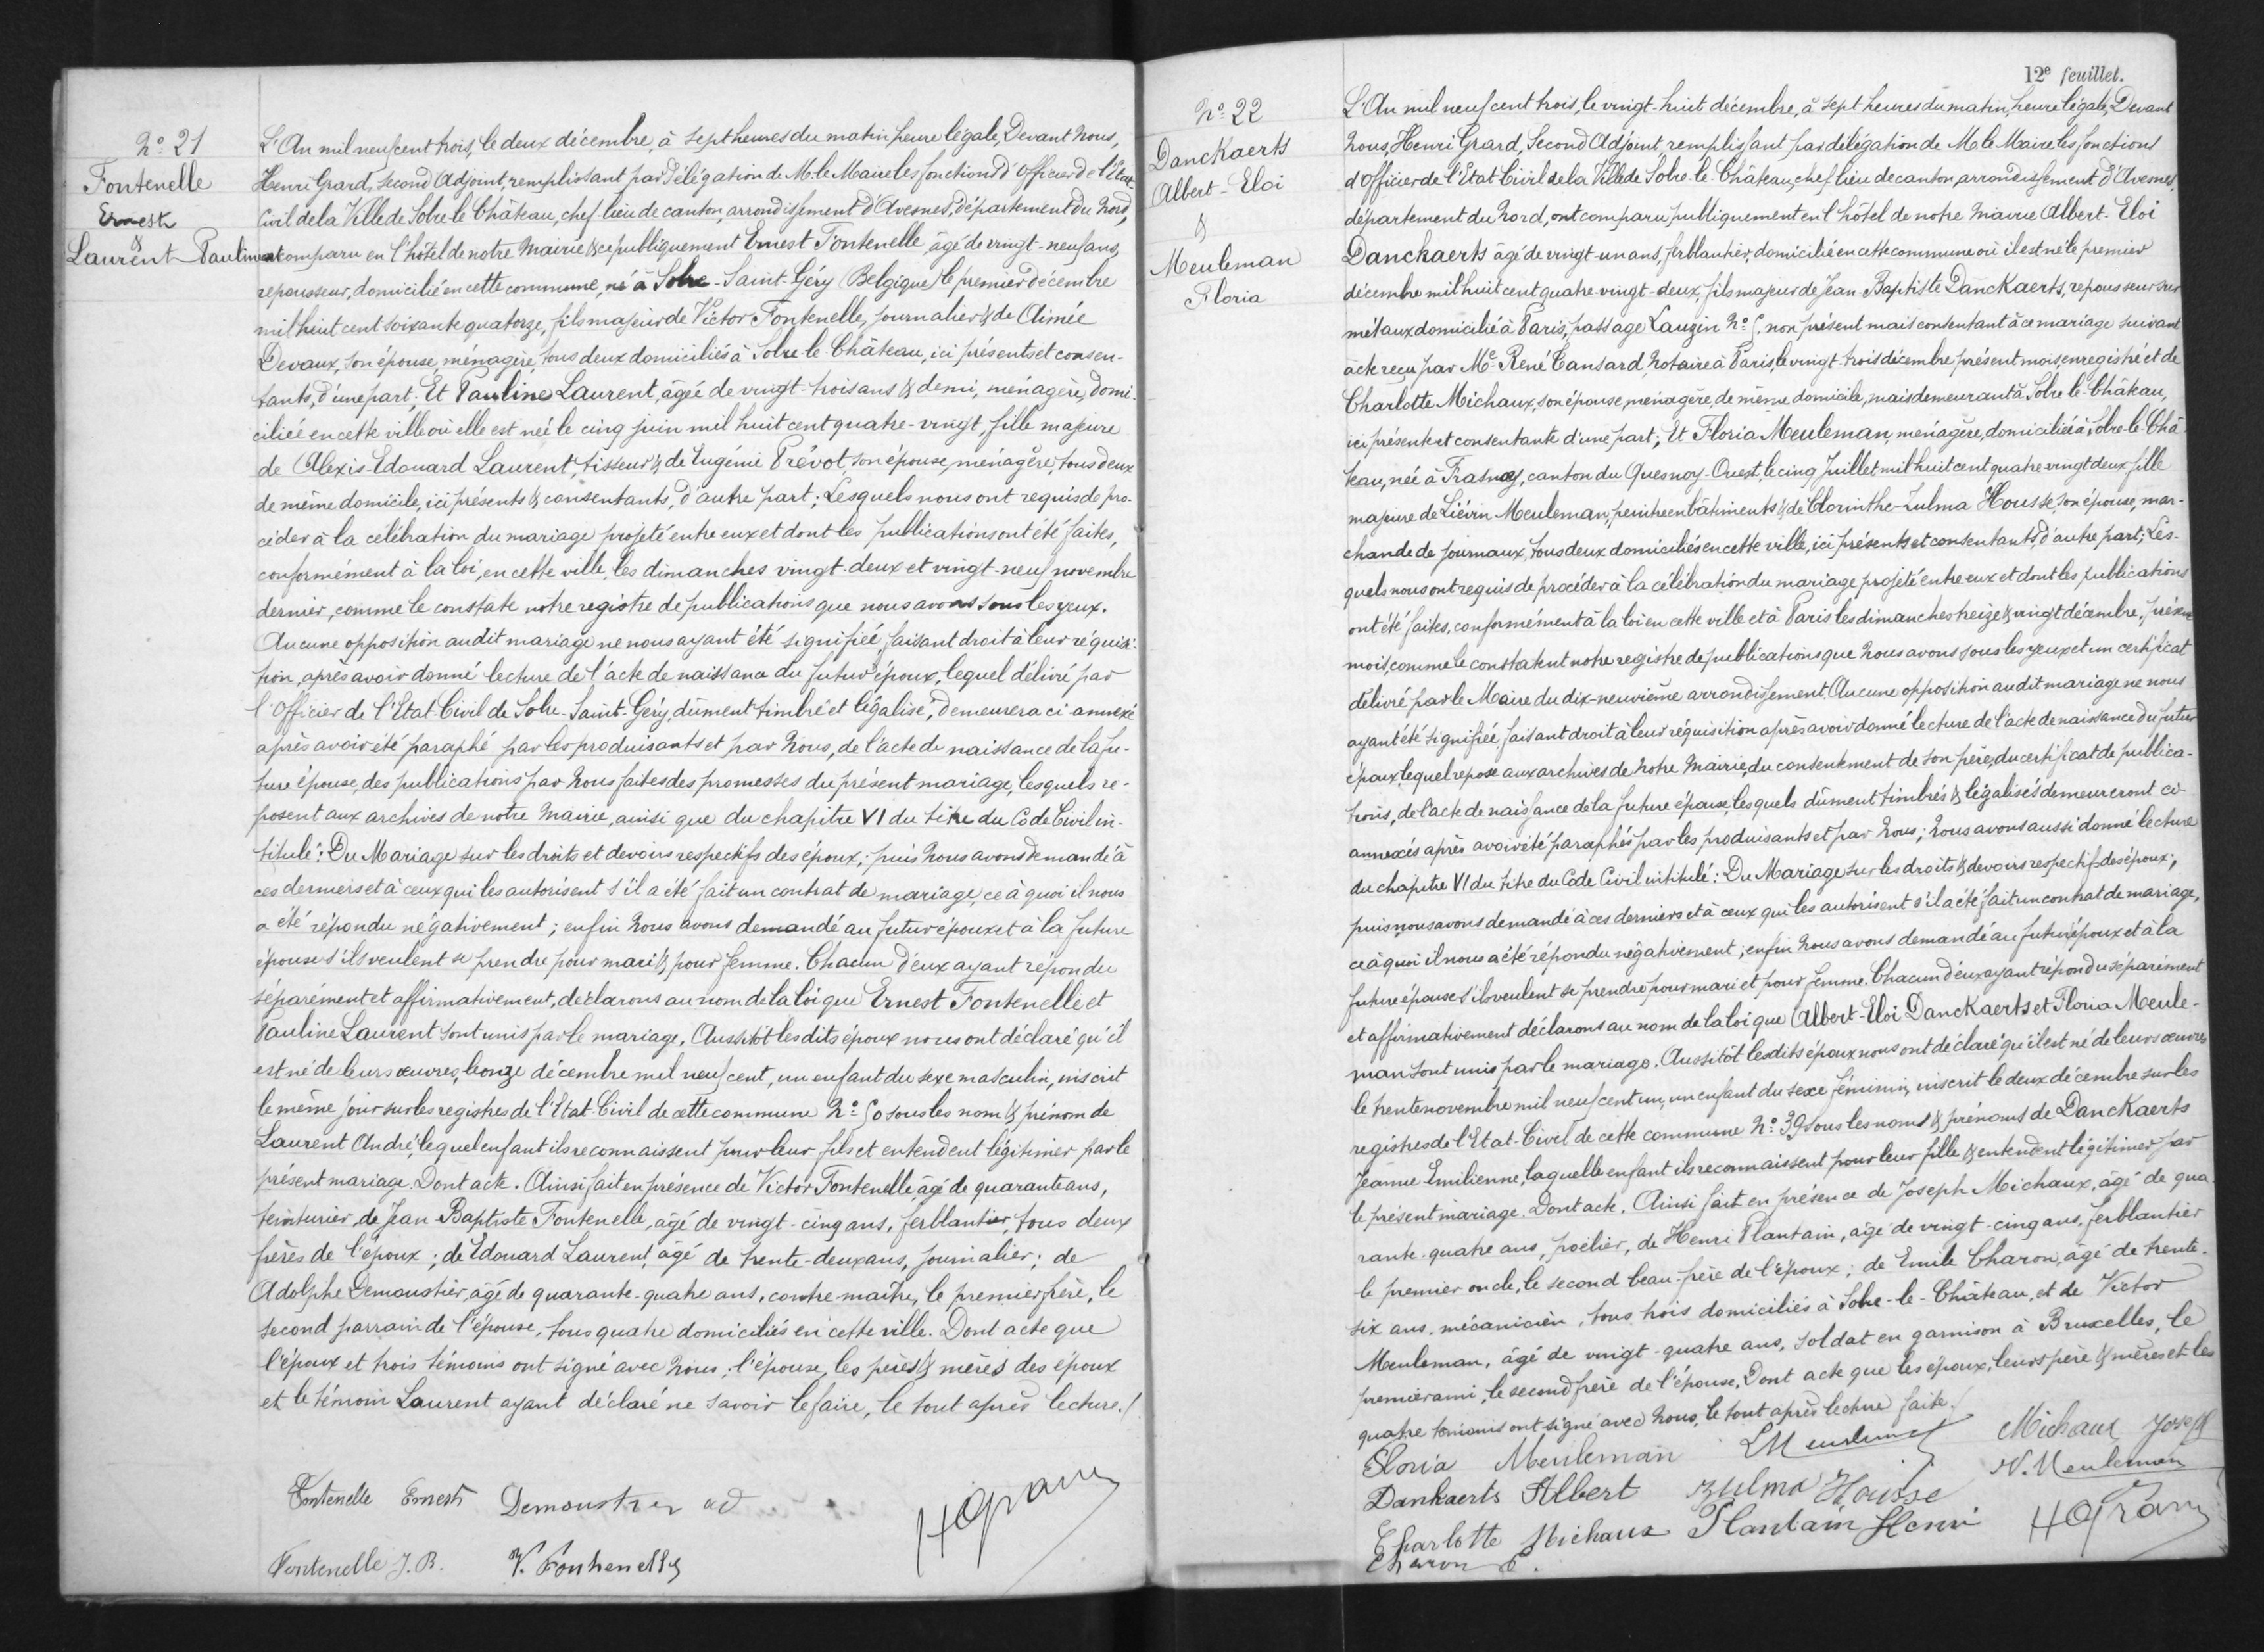 N° 21
Fontenelle
Ernest
&
Laurent Pauline
L'An mil neuf cent trois, le deux décembre, à sept heures du matin heure légale, Devant Nous,
Henri Grard, second Adjoint, remplissant par délégation de M. le Maire les fonctions d'Officier de l'Etat
Civil de la Ville de Solre le Château, chef-lieu de canton, arrondissement d'Avesnes, département du Nord,
ont comparu en l'hôtel de notre Mairie & ce publiquement Ernest Fontenelle âgé de vingt-neuf ans,
repousseur, domicilié en cette commune, né à Solre-Saint-Géry (Belgique) le premier décembre
mil huit cent soixante quatorze, fils majeur de Victor Fontenelle, journalier & de Aimée
Devaux, son épouse, ménagère, tous deux domiciliés à Solre-le-Château, ici présents et consen-
tants, d'une part; Et Pauline Laurent, âgée de vingt-trois ans & demi, ménagère, domi-
ciliée en cette ville où elle est née le cinq juin mil huit cent quatre-vingt, fille majeure
de Alexis-Edouard Laurent, tisseur & de Eugénie Prévot, son épouse, ménagère, tous deux
de même domicile, ici présents & consentants, d'autre part; Lesquels nous ont requis de pro-
céder à la célébration du mariage projeté entre eux et dont les publications ont été faites,
conformément à la loi, en cette ville, les dimanches vingt-deux et vingt-neuf novembre
dernier, comme le constate notre registre de publications que nous avons sous les yeux.
Aucune opposition audit mariage ne nous ayant été signifiée, faisant droit à leur réquisi-
tion, après avoir donné lecture de l'acte de naissance du futur époux, lequel délivré par
l'Officier de l'Etat-Civil de Solre-Saint-Géry, dûment timbré et légalisé, demeurera ci-annexé
après avoir été paraphé par les produisants et par Nous, de l'acte de naissance de la fu-
ture épouse, des publications par Nous faites des promesses du présent mariage, lesquels re-
posent aux archives de notre Mairie, ainsi que du chapitre VI du titre du Code Civil in-
titulé: Du Mariage sur les droits et devoirs respectifs des époux; puis Nous avons demandé à
ces derniers et à ceux qui les autorisent s'il a été fait un contrat de mariage, ce à quoi il nous
a été répondu négativement; enfin Nous avons demandé au futur époux et à la future
épouse s'ils veulent se prendre pour mari & pour femme. Chacun d'eux ayant répondu
séparément et affirmativement, déclarons au nom de la loi que Ernest Fontenelle et
Pauline Laurent sont unis par le mariage. Aussitôt lesdits époux nous ont déclaré qu'il
est né de leurs œuvres, le onze décembre mil neuf cent, un enfant du sexe masculin, inscrit
le même jour sur les registres de l'Etat-Civil de cette commune N° 50 sous les nom & prénom de
Laurent André, lequel enfant ils reconnaissent pour leur fils et entendent légitimer par le
présent mariage. Dont acte. Ainsi fait en présence de Victor Fontenelle, âgé de quarante ans,
teinturier, de Jean Baptiste Fontenelle, âgé de vingt-cinq ans, ferblantier, tous deux
frères de l'époux; de Edouard Laurent, âgé de trente-deux ans, journalier; de
Adolphe Demoustier, âgé de quarante-quatre ans, contre-maître, le premier frère, le
second parrain de l'épouse, tous quatre domiciliés en cette ville. Dont acte que
l'époux et trois témoins ont signé avec Nous; l'épouse, les pères & mères des époux
et le témoin Laurent ayant déclaré ne savoir le faire, le tout après lecture./
Fontenelle Ernest Demoustier ad HGrard
Fontenelle J.B. V. Fontenelle
12e feuillet.
N° 22
Danckaerts
Albert-Eloi
&
Meuleman
Floria
L'An mil neuf cent trois, le vingt-huit décembre, à sept heures du matin, heure légale, Devant
Nous, Henri Grard, Second Adjoint, remplissant par délégation de M. le Maire les fonctions
d'Officier de l'Etat Civil de la Ville de Solre-le-Château, chef-lieu de canton, arrondissement d'Avesnes,
département du Nord, ont comparu publiquement en l'hôtel de notre Mairie Albert-Eloi
Danckaerts âgé de vingt-un ans, ferblantier, domicilié en cette commune où il est né le premier
décembre mil huit cent quatre-vingt-deux, fils majeur de Jean-Baptiste Danckaerts, repousseur sur
métaux domicilié à Paris, passage Lauzin N° 5, non présent mais consentant à ce mariage suivant
acte reçu par Me René Cansard, Notaire à Paris, le vingt-trois décembre présent mois, enregistré et de
Charlotte Michaux, son épouse, ménagère, de même domicile, mais demeurant à Solre-le-Château,
ici présente et consentante d'une part; Et Floria Meuleman, ménagère, domiciliée à Solre-le-Châ-
teau, née à Frasnoy, canton du Quesnoy-Ouest, le cinq Juillet mil huit cent quatre vingt deux, fille
majeure de Liévin Meuleman, peintre en bâtiments & de Clorinthe-Zulma Housse, son épouse, mar-
chande de journaux, tous deux domiciliés en cette ville, ici présents et consentants, d'autre part; Les-
quels nous ont requis de procéder à la célébration du mariage projeté entre eux et dont les publications
ont été faites, conformément à la loi en cette ville et à Paris les dimanches treize & vingt décembre, présent
mois, comme le constatent notre registre de publications que Nous avons sous les yeux et un certificat
délivré par le Maire du dix-neuvième arrondissement. Aucune opposition audit mariage ne nous
ayant été signifiée, faisant droit à leur réquisition après avoir donné lecture de l'acte de naissance du futur
époux, lequel repose aux archives de notre Mairie, du consentement de son père, du certificat de publica-
tions, de l'acte de naissance de la future épouse, lesquels dûment timbrés & légalisés demeureront ci-
annexés après avoir été paraphés par les produisants et par Nous; Nous avons aussi donné lecture
du chapitre VI du titre du Code Civil intitulé: Du Mariage sur les droits & devoirs respectifs des époux;
puis nous avons demandé à ces derniers et à ceux qui les autorisent s'il a été fait un contrat de mariage,
ce à quoi il nous a été répondu négativement; enfin Nous avons demandé au futur époux et à la
future épouse s'ils veulent se prendre pour mari et pour femme. Chacun d'eux ayant répondu séparément
et affirmativement déclarons au nom de la loi que Albert-Eloi Danckaerts et Floria Meule-
man sont unis par le mariage. Aussitôt lesdits époux nous ont déclaré qu'il est né de leurs œuvres
le trente novembre mil neuf cent un, un enfant du sexe féminin, inscrit le deux décembre sur les
registres de l'Etat-Civil de cette commune N° 39 sous les noms & prénoms de Danckaerts
Jeanne Emilienne, laquelle enfant ils reconnaissent pour leur fille & entendent légitimer par
le présent mariage. Dont acte. Ainsi fait en présence de Joseph Michaux, âgé de qua-
rante-quatre ans, poëlier, de Henri Plantain, âgé de vingt-cinq ans, ferblantier
le premier oncle, le second beau-frère de l'époux; de Emile Charon, âgé de trente-
six ans, mécanicien, tous trois domiciliés à Solre-le-Château, et de Victor
Meuleman, âgé de vingt-quatre ans, soldat en garnison à Bruxelles, le
premier ami, le second frère de l'épouse. Dont acte que les époux, leurs père & mères et les
quatre témoins ont signé avec Nous, le tout après lecture faite./
Floria Meuleman LMeuleman Michaux Joseph
Dankaerts Albert Zulma Housse V. Meuleman
Charlotte Michaux Plantain Henri HGrard
Charon E.